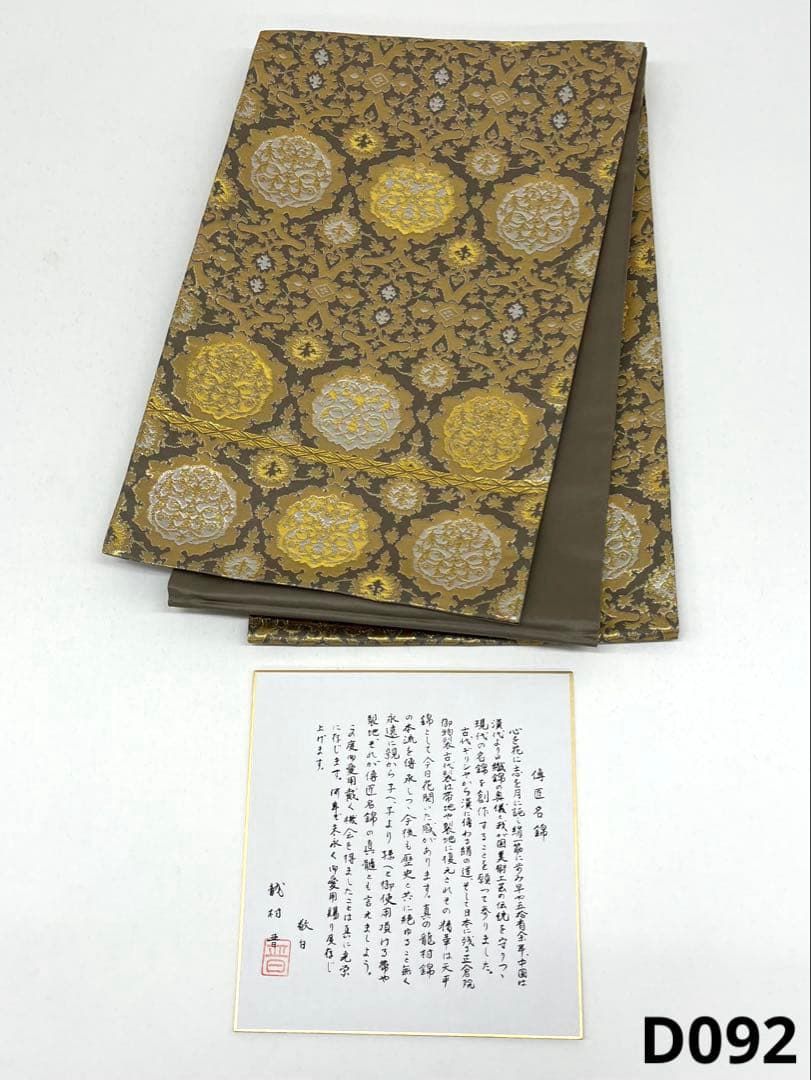 傳匠名錦
心を花に志を月に託し絹筋に歩み早や五拾有余年、中国は
漢代よりの織錦の奥儀と我が国美術工芸の伝統を守りつゝ
現代の名錦を創作することを願って参りました。
古代ギリシヤから漢に傳わる絹の道、そして日本に残る正倉院
御物裂古代裂は帯地や裂地に復元されその精華は天平
錦として今日花開いた感があります。真の龍村錦
の本流を傳承しつゝ今後も歴史と共に絶ゆること無く
永遠に親から子へ、子より孫へと御使用頂ける帯や
裂地、それが傳匠名錦の真髄とも言えましよう。
この度御愛用戴く機会を得ましたことは真に光栄
に存じます。何卒末永く御愛用賜り度存じ
上げます。
敬白
龍村晋
D092